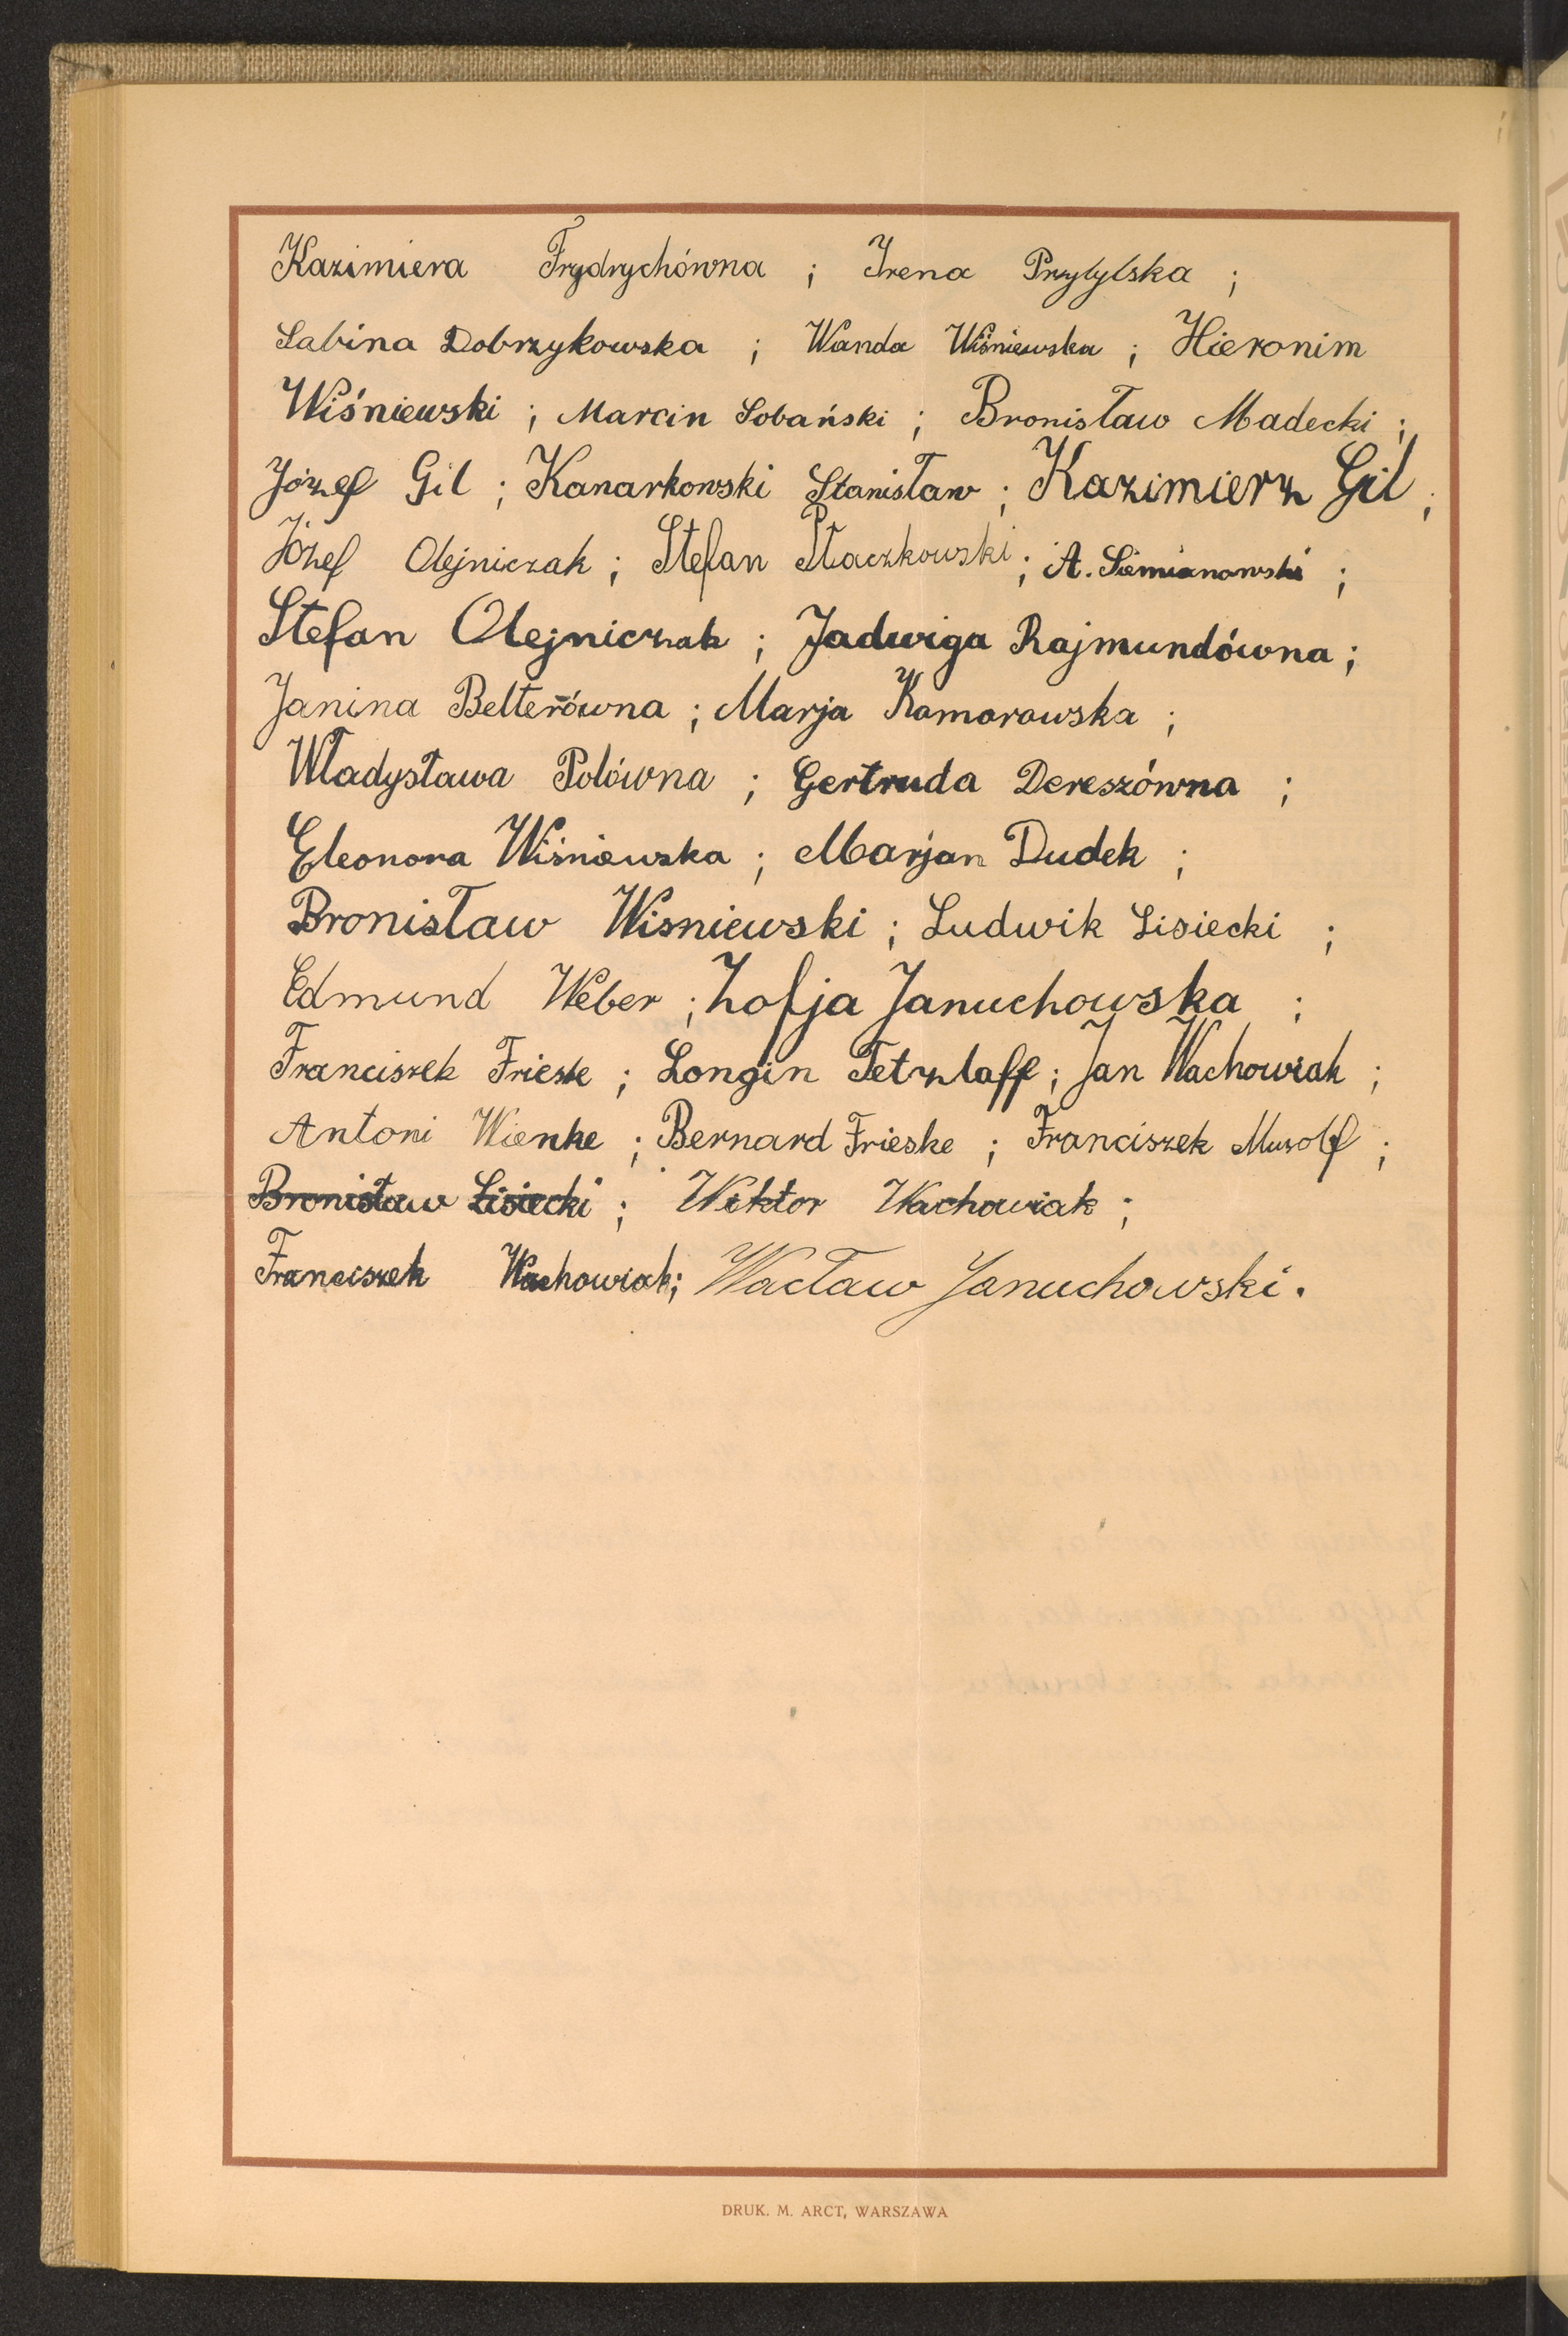 Kazimiera Frydrychówna ; Irena Przybylska ;
Sabina Dobrzykowska ; Wanda Wiśniewska ; Hieronim
Wiśniewski ; Marcin Sobański ; Bronisław Madecki ;
Józef Gil ; Kanarkowski Stanisław ; Kazimierz Gil ;
Józef Olejniczak ; Stefan Płaczkowski ; A. Siemianowski ;
Stefan Olejniczak ; Jadwiga Rajmundówna ;
Janina Belterówna ; Marja Komorowska ;
Władysława Polówna ; Gertruda Dereszówna ;
Eleonora Wiśniewska ; Marjan Dudek ;
Bronisław Wisniewski ; Ludwik Lisiecki ;
Edmund Weber ; Zofja Januchowska ;
Franciszek Frieske ; Longin Tetzlaff ; Jan Wachowiak ;
Antoni Wienke ; Bernard Frieske ; Franciszek Musolf ;
Bronisław Lisiecki ; Wiktor Wachowiak ;
Franciszek Wachowiak ; Wacław Januchowski .
DRUK. M. ARCT, WARSZAWA